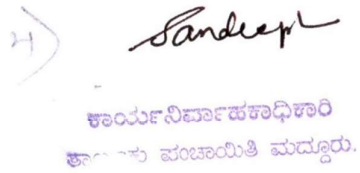 Sandeep
ಕಾರ್ಯನಿರ್ವಾಹಕಾಧಿಕಾರಿ
ಪಂಚಾಯಿತಿ ಮದ್ದೂರು.